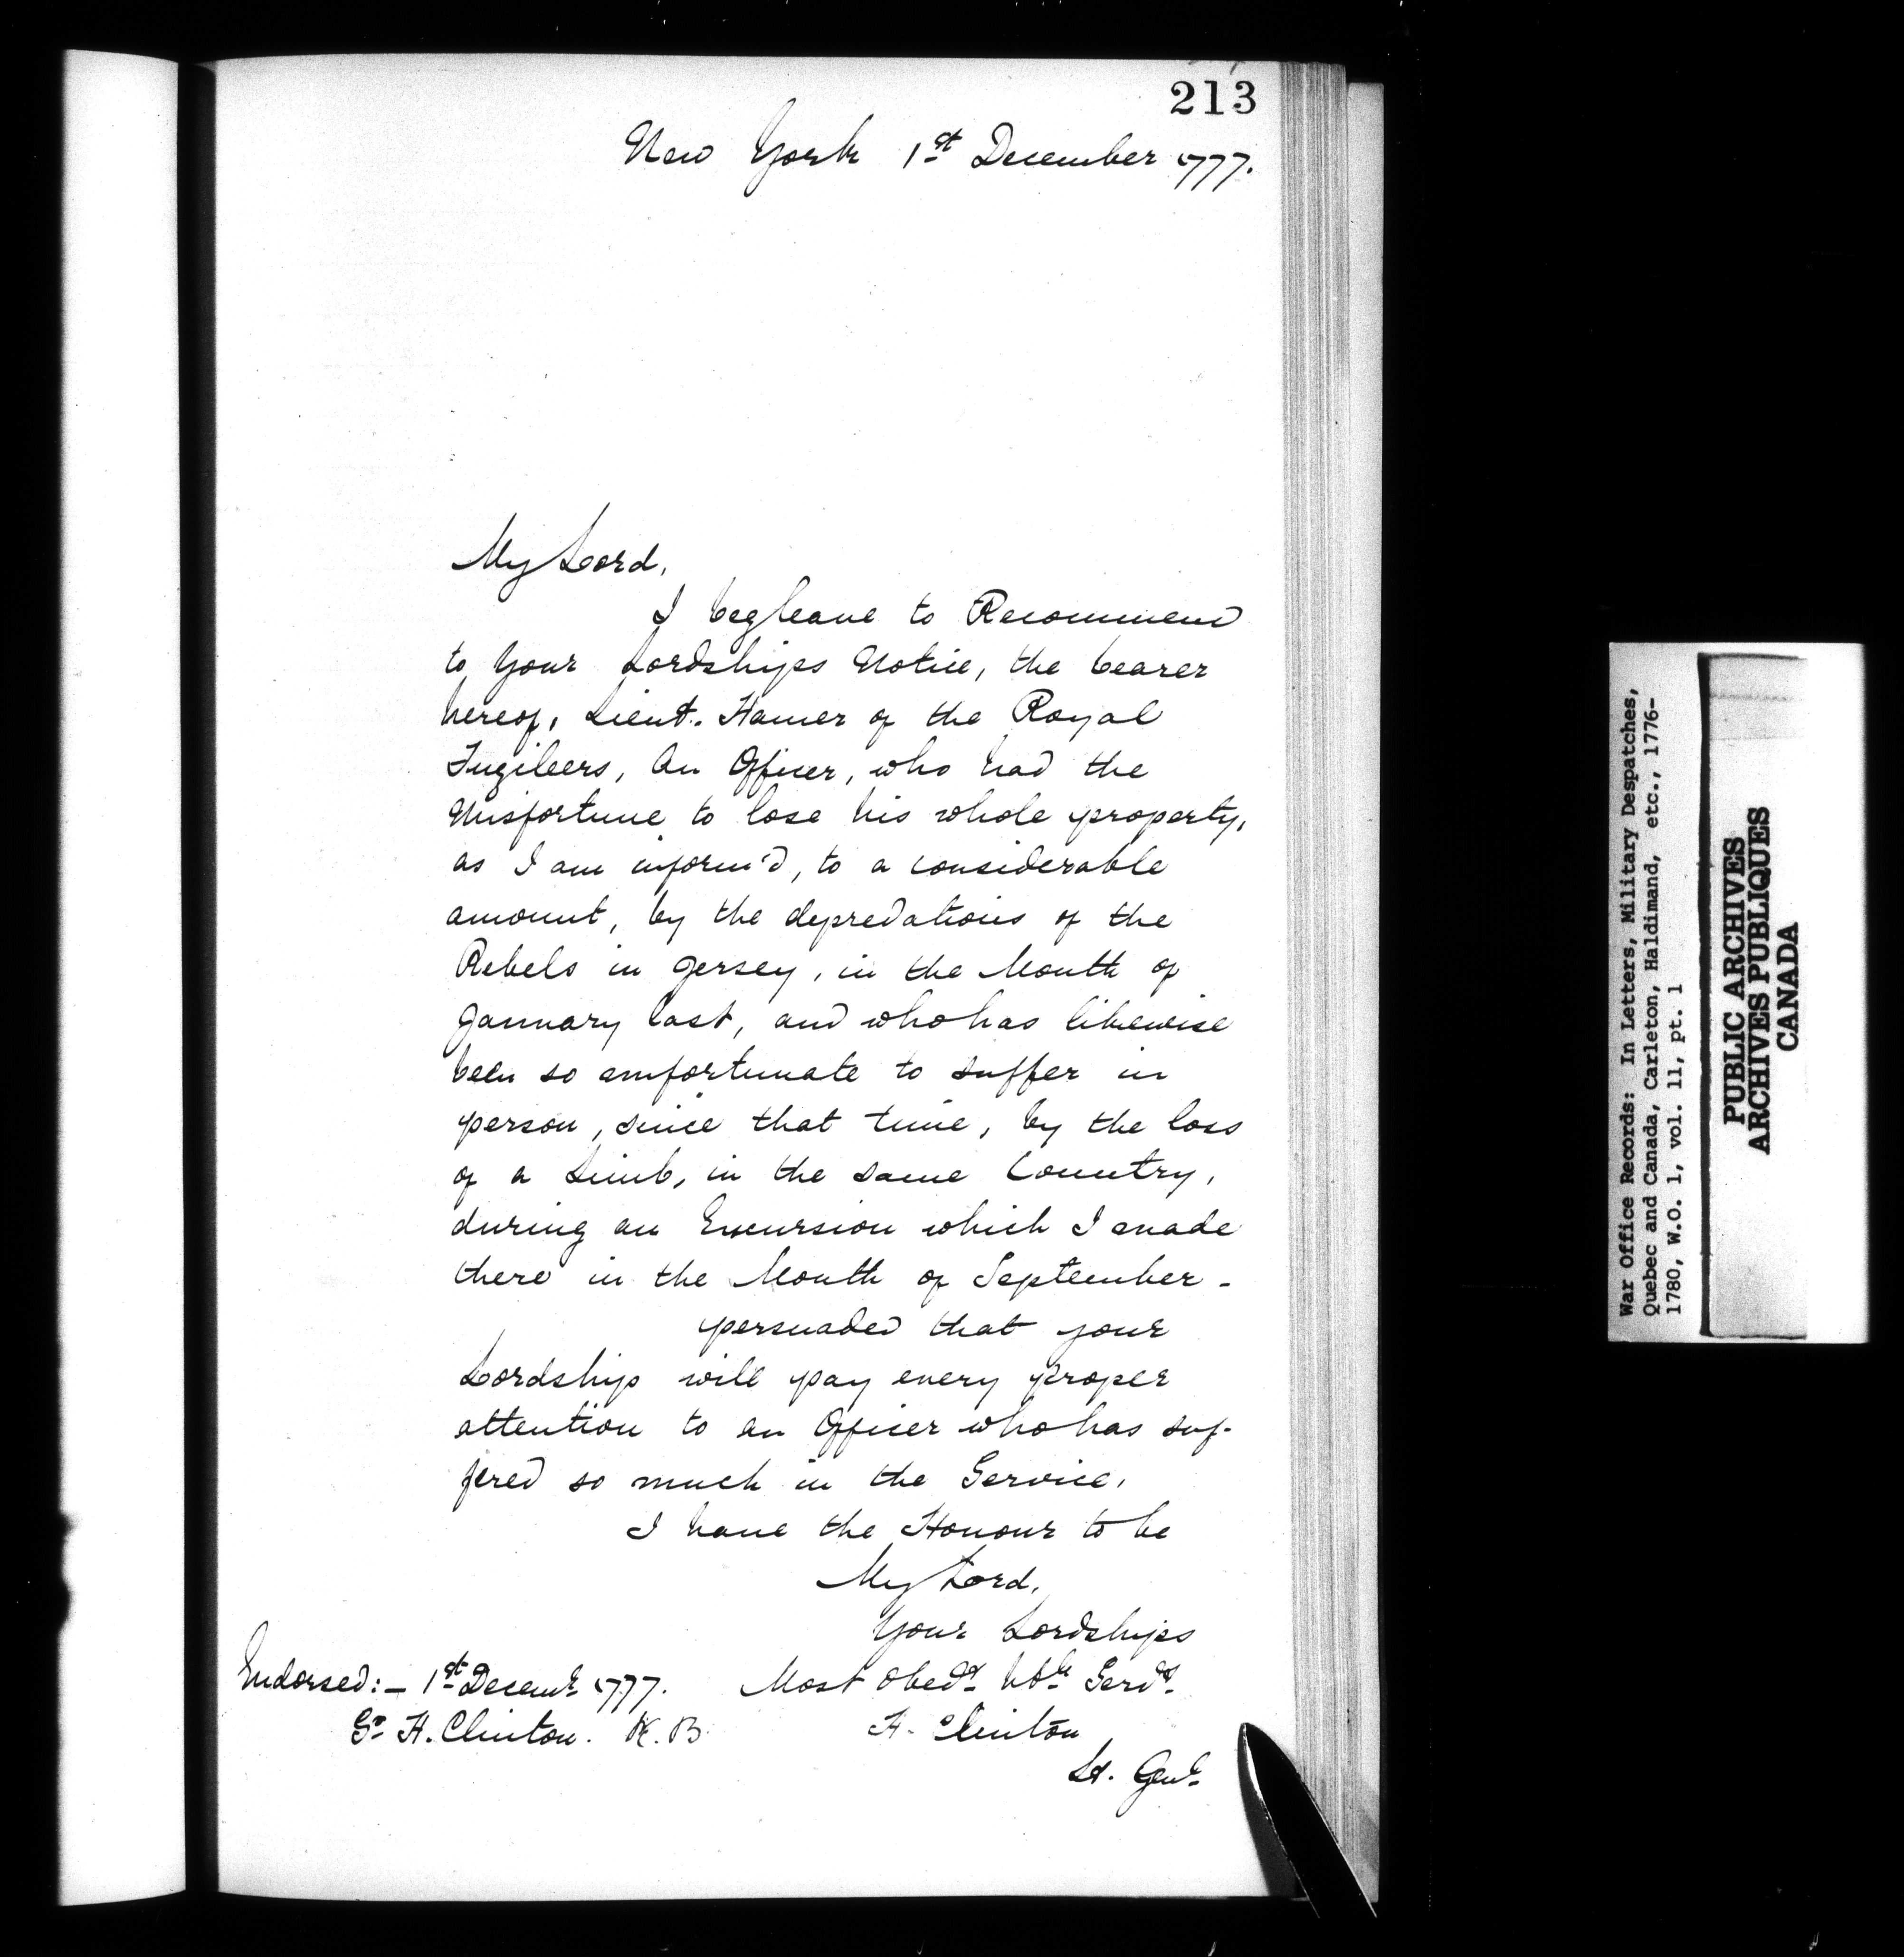 213
New York 1st December 1777.
My Lord,
I beg leave to Recommend
to Your Lordships Notice, the bearer
hereof, Lieut. Hamer of the Royal
Fuzileers, An Officer, who had the
Misfortune to lose his whole property,
as I am inform'd, to a considerable
amount, by the depredations of the
Rebels in Jersey, in the Month of
January last, and who has likewise
been so unfortunate to suffer in
person, since that time, by the loss
of a Limb, in the same Country,
during an Excursion which I made
there in the Month of September -
persuaded that your
Lordship will pay every proper
attention to an Officer who has suf-
fered so much in the Service,
I have the Honour to be
My Lord,
Your Lordships
Most obedt. hble Servt.
H. Clinton
Lt. Genl.
Endorsed: - 1st Decemr 1777.
Sr H. Clinton. K. B.
War Office Records: In Letters, Military Despatches,
Quebec and Canada, Carleton, Haldimand, etc., 1776-
1780, W.O. 1, vol. 11, pt. 1
PUBLIC ARCHIVES
ARCHIVES PUBLIQUES
CANADA